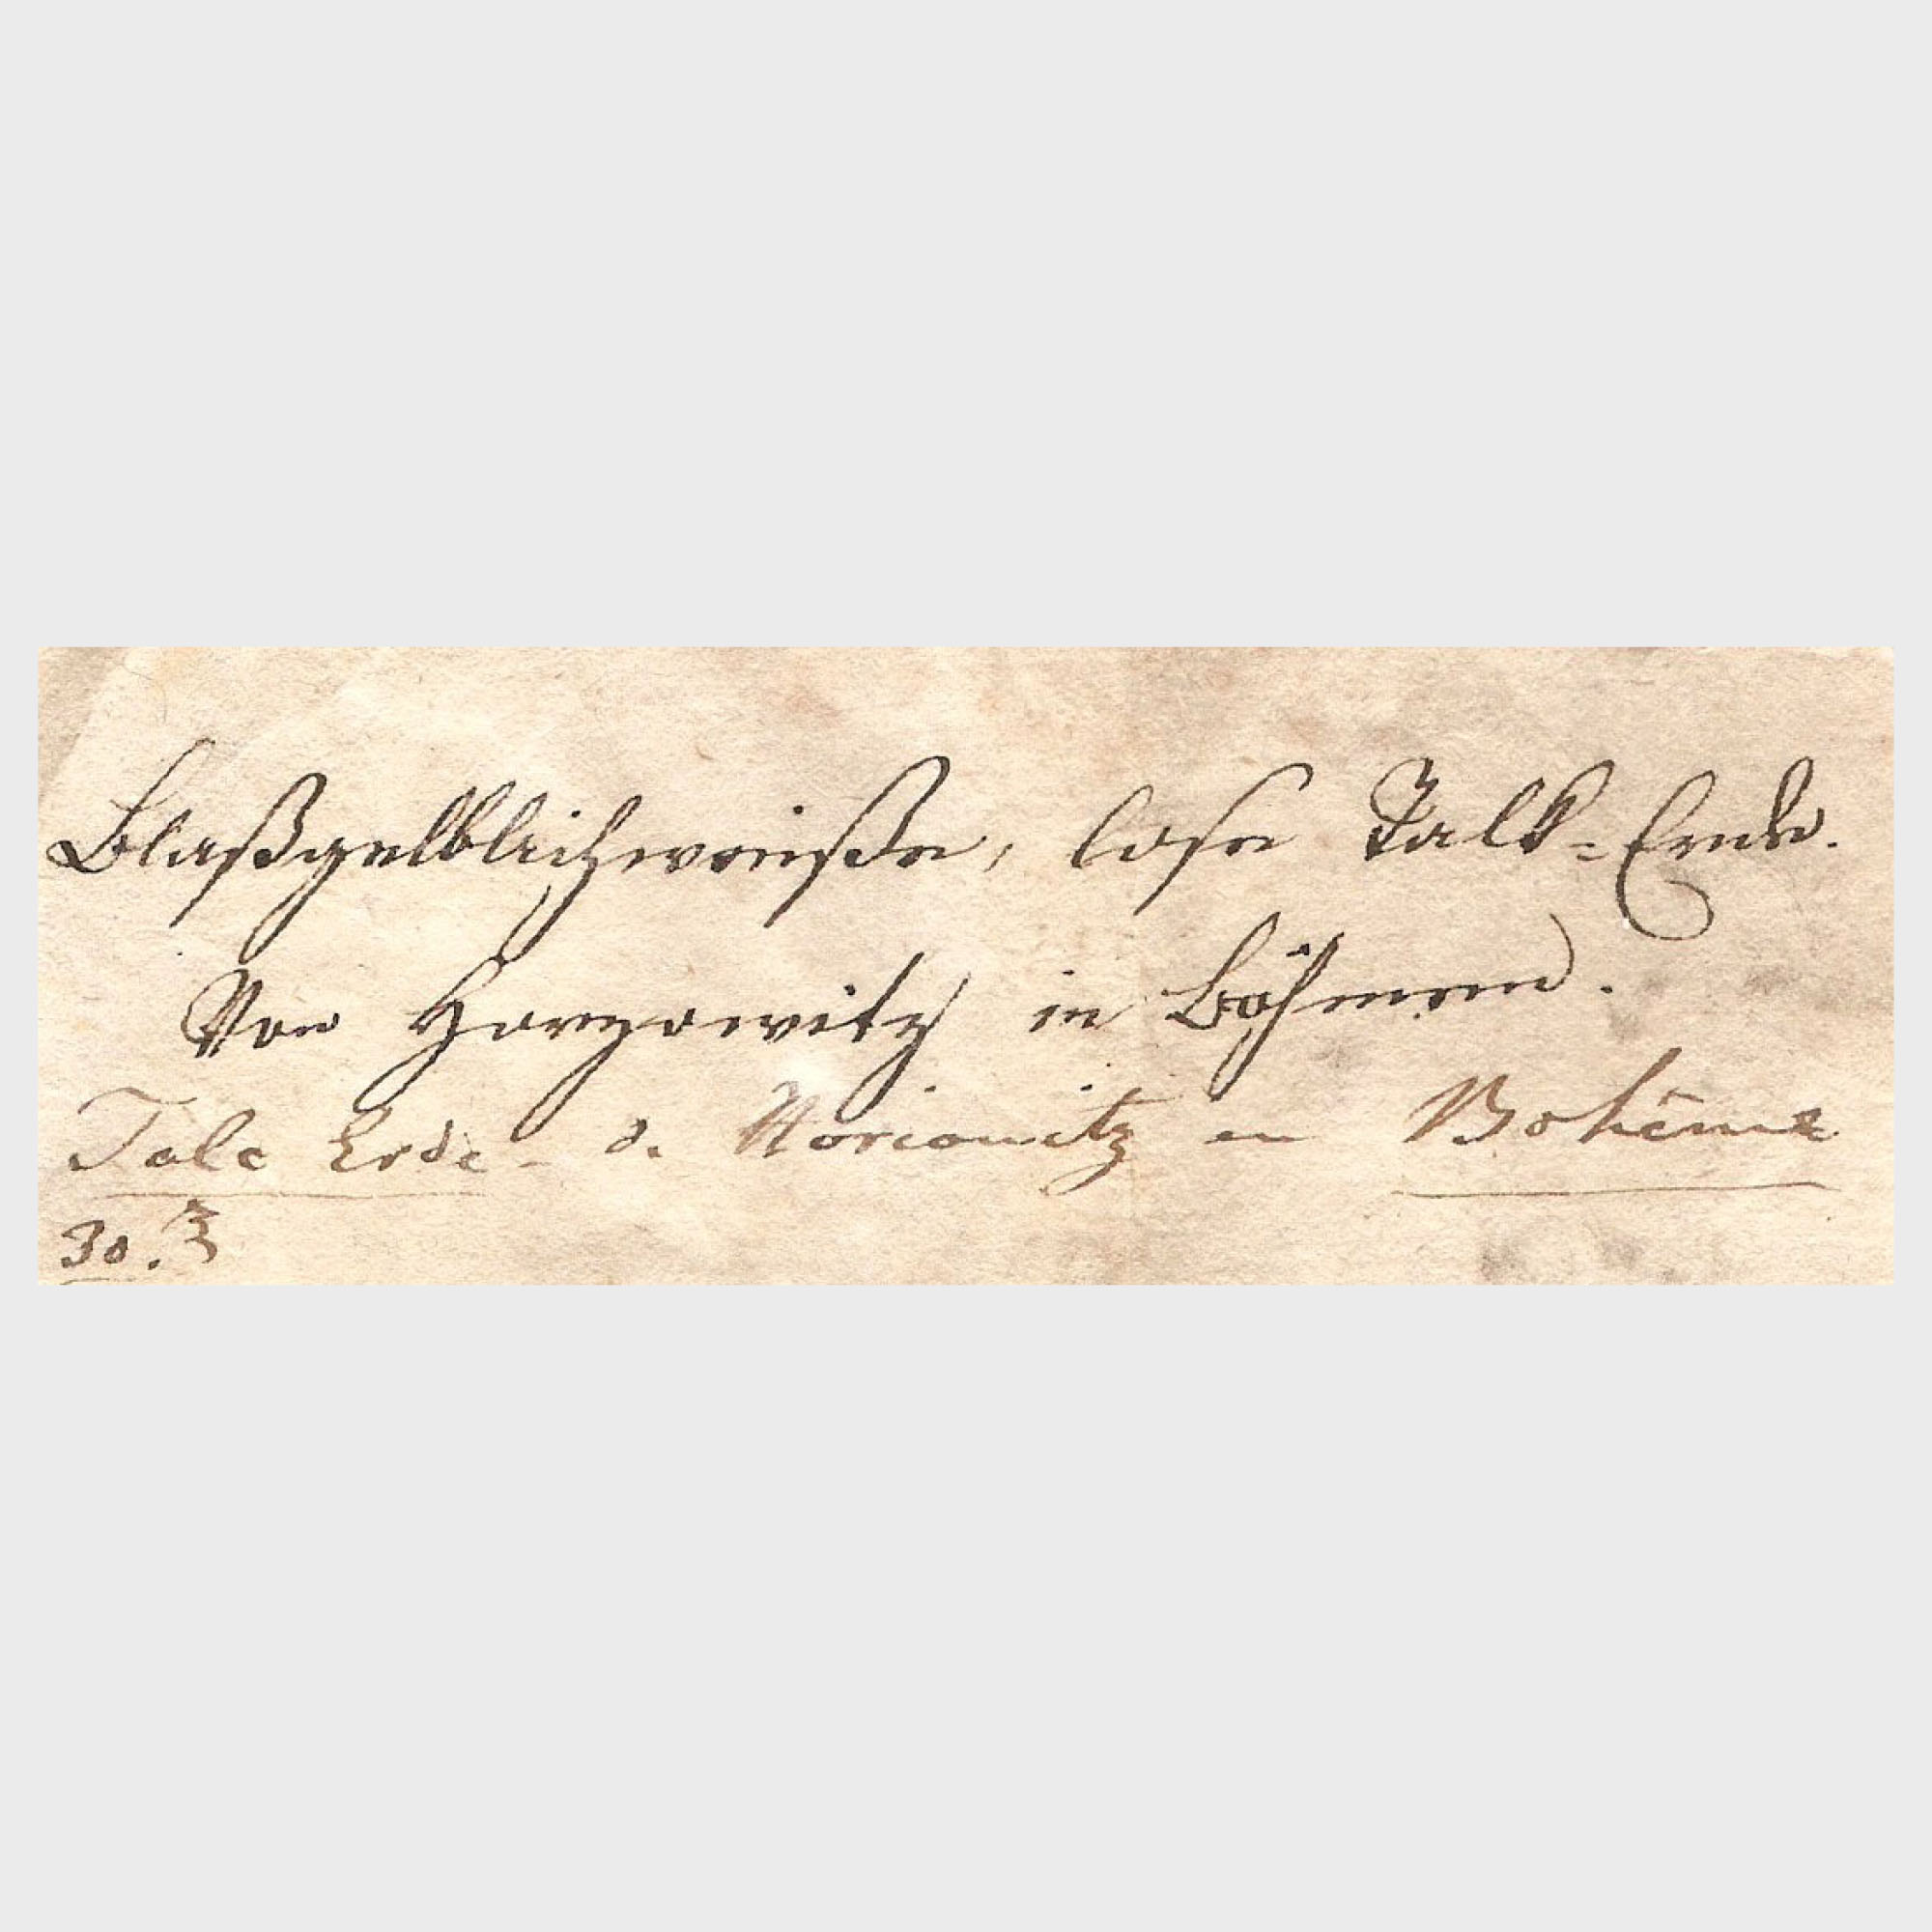 Blaßgelblichweiße, lose Talk-Erde.
Von Horzowitz in Böhmen.
Talc Erde - de Horiowitz en Bohême
30.